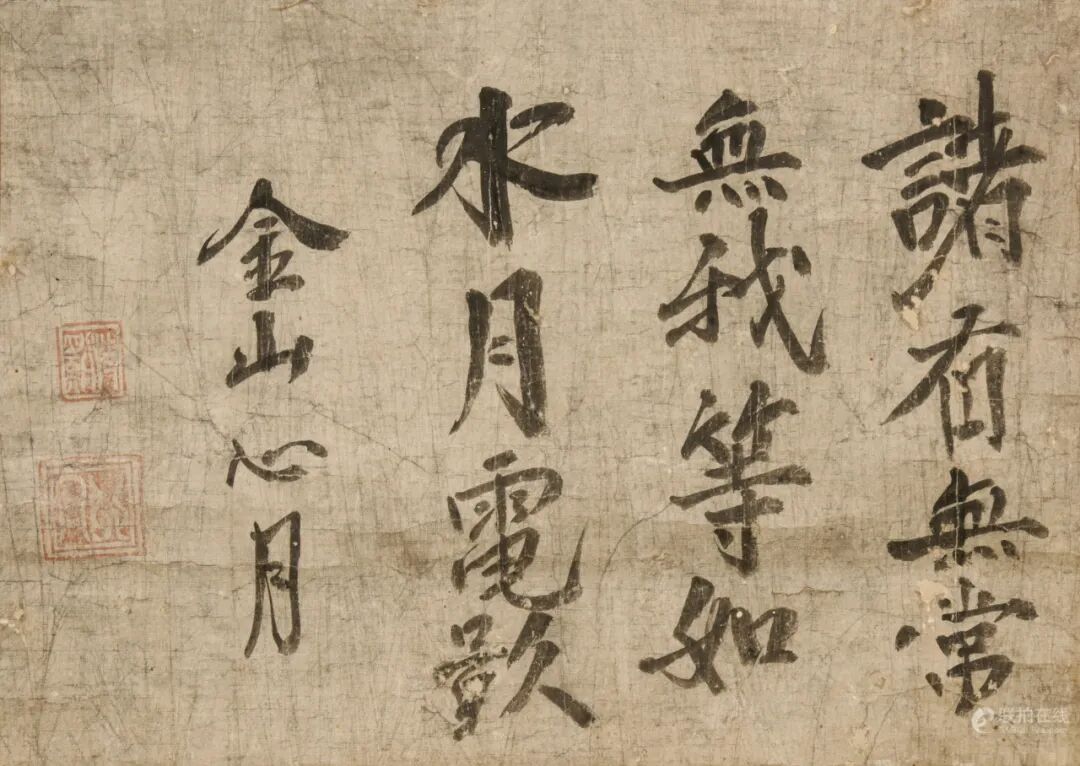 諸有無常
無我等如
水月電影
金山心月
联拍在线